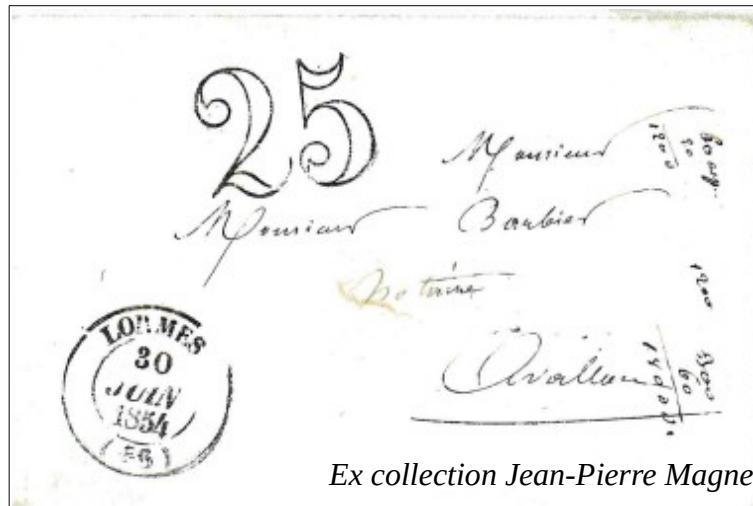 25
Monsieur
Monsieur Barbier
Notaire
Avallon
LORMES
30
JUIN
1854
1200
Ex collection Jean-Pierre Magne